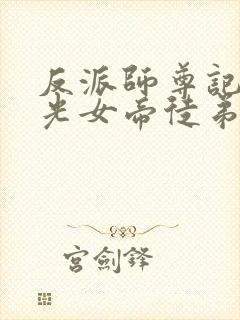 反派師尊記
光女帝徒弟
宮劍鋒